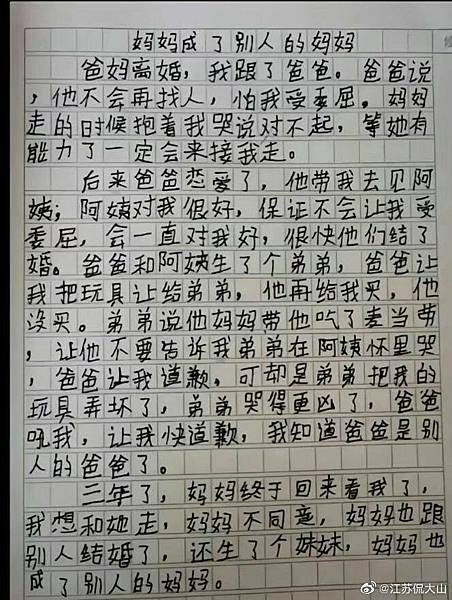 妈妈成了别人的妈妈
爸妈离婚，我跟了爸爸。爸爸说
，他不会再找人，怕我受委屈。妈妈
走的时候抱着我哭说对不起，等她有
能力了一定会来接我走。
后来爸爸恋爱了，他带我去见阿
姨；阿姨对我很好，保证不会让我受
委屈，会一直对我好，很快他们结了
婚。爸爸和阿姨生了个弟弟，爸爸让
我把玩具让给弟弟，他再给我买，他
没买。弟弟说他妈妈带他吃了麦当劳
，让他不要告诉我弟弟在阿姨怀里哭
，爸爸让我道歉，可却是弟弟把我的
玩具弄坏了，弟弟哭得更凶了，爸爸
吼我，让我快道歉，我知道爸爸是别
人的爸爸了。
二年了，妈妈终于回来看我了，
我想和她走，妈妈不同意，妈妈也跟
别人结婚了，还生了个妹妹，妈妈也
成了别人的妈妈。
@江苏侃大山